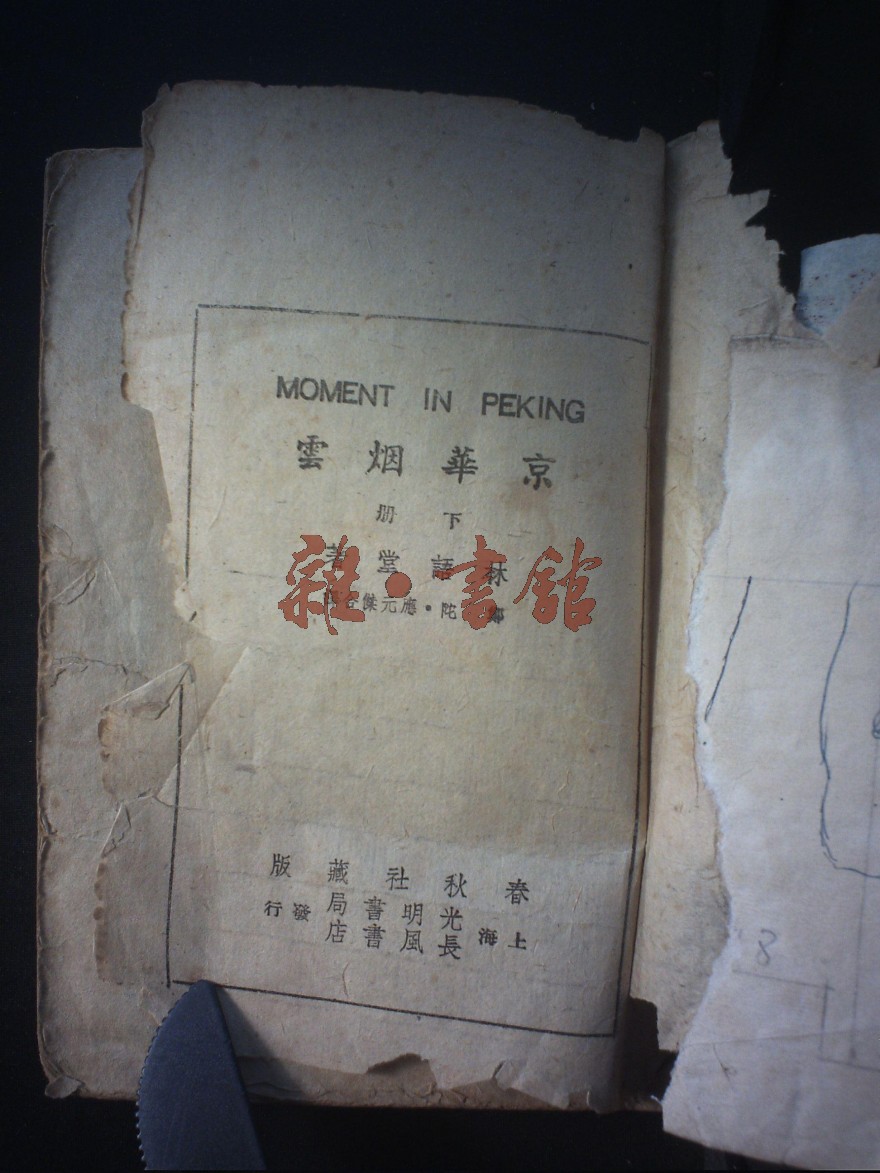 MOMENT IN PEKING
京華烟雲
下册
林語堂著
鄭陀・應元傑合
雜・書館
春秋社藏版
光明書局
上海 發行
長風書店
8